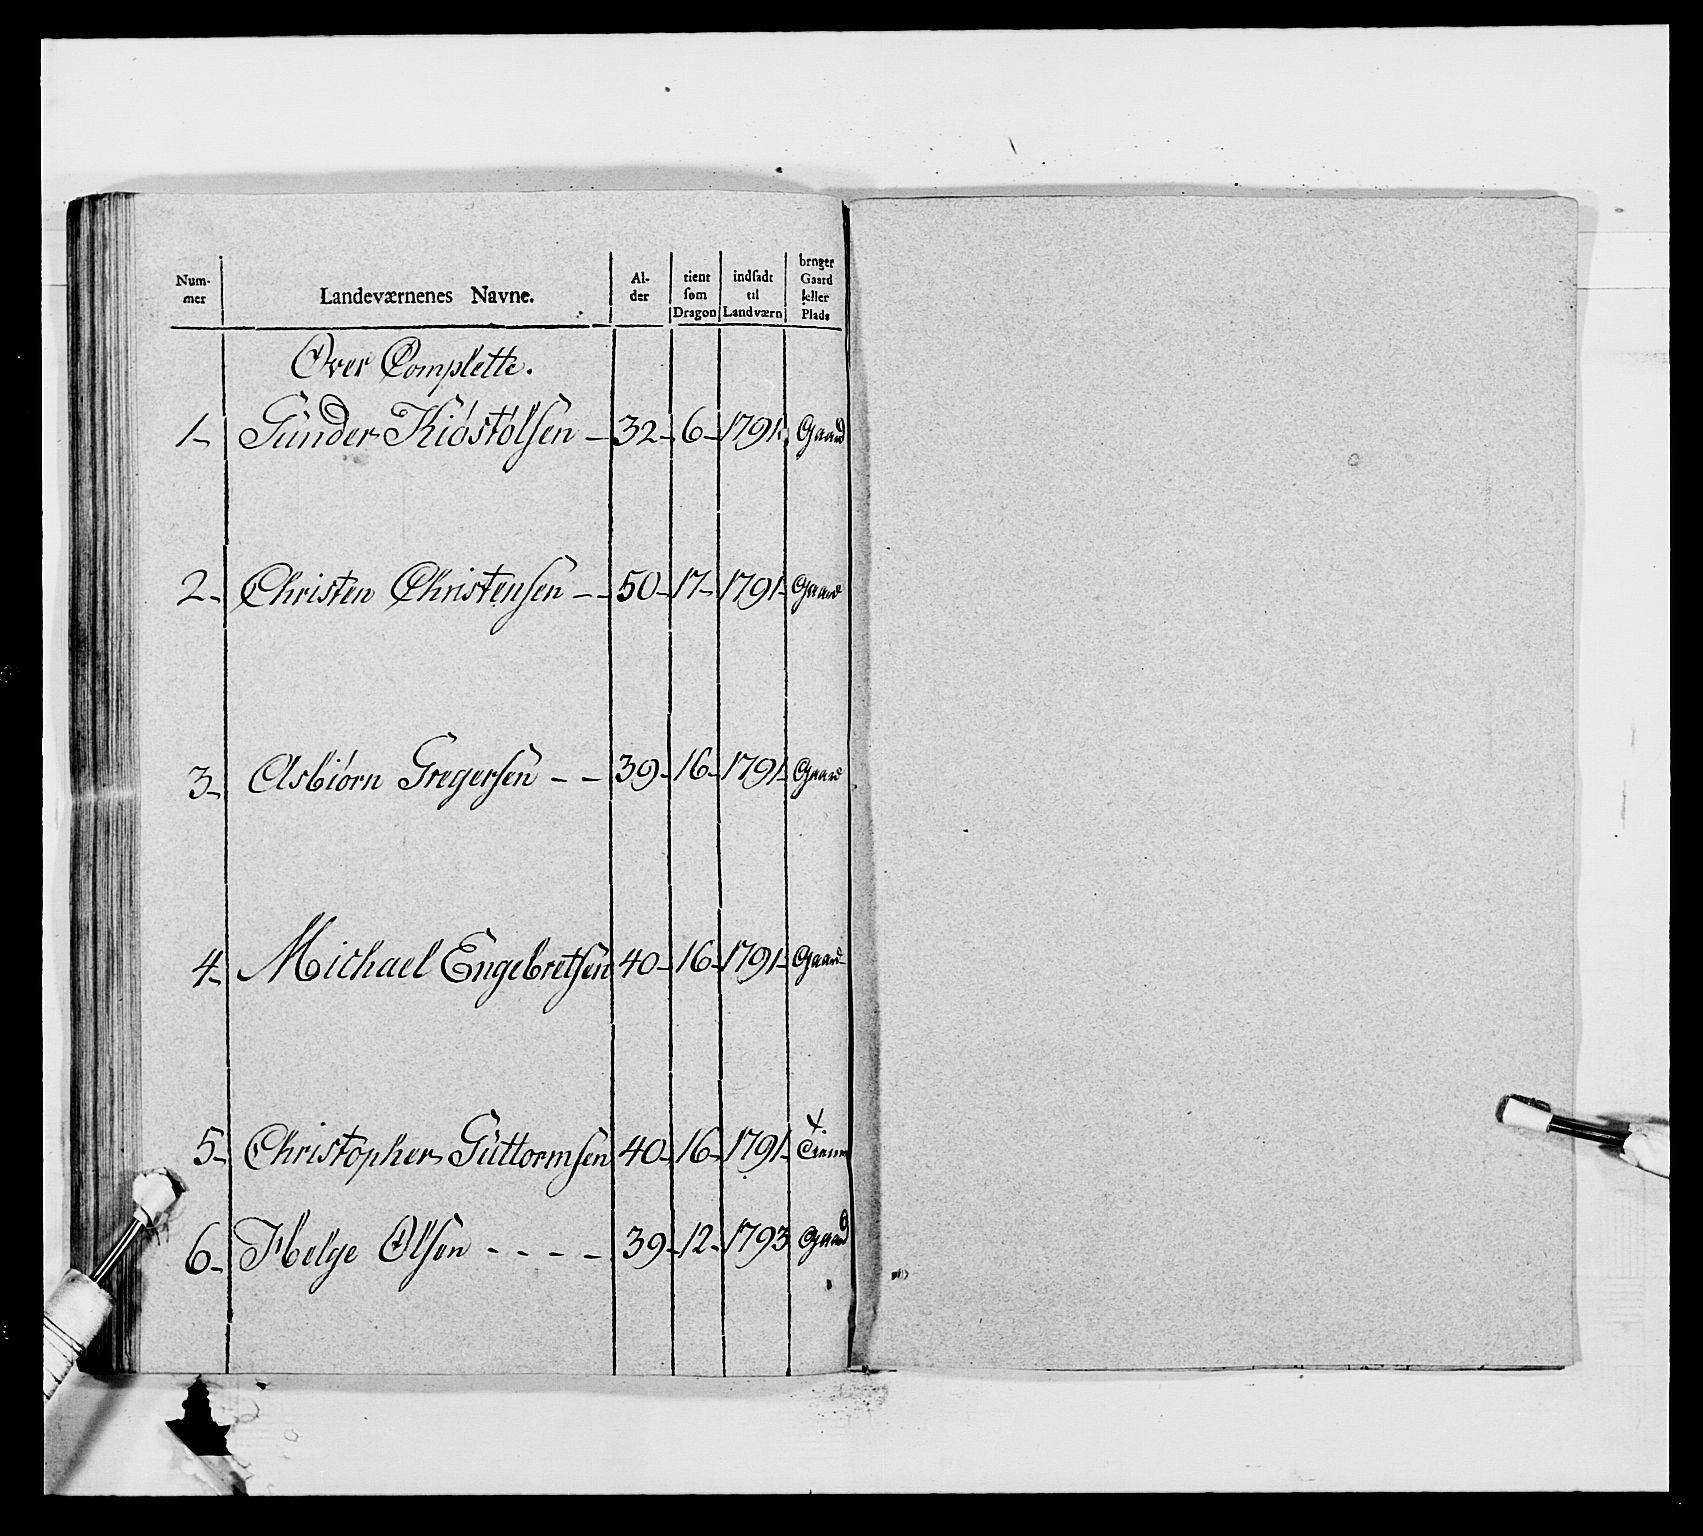 Num-
mer
Landeværnenes Navne.
Al-
der
tient
som
Dragon
indsadt
til
Landværn
bruger
Gaard
eller
Plads
Over Complette.
1- Gunder Kiøstølsen - 32- 6- 1791. Gaard
2- Christen Christensen - - 50- 17- 1791- Gaard
3- Asbiørn Gregersen - - 39- 16- 1791- Gaard
4- Michael Engebretsen 40- 16- 1791- Gaard
5- Christopher Guttormsen 40- 16- 1791-
6- Helge Olsen - - - - 39- 12- 1793 Gaard